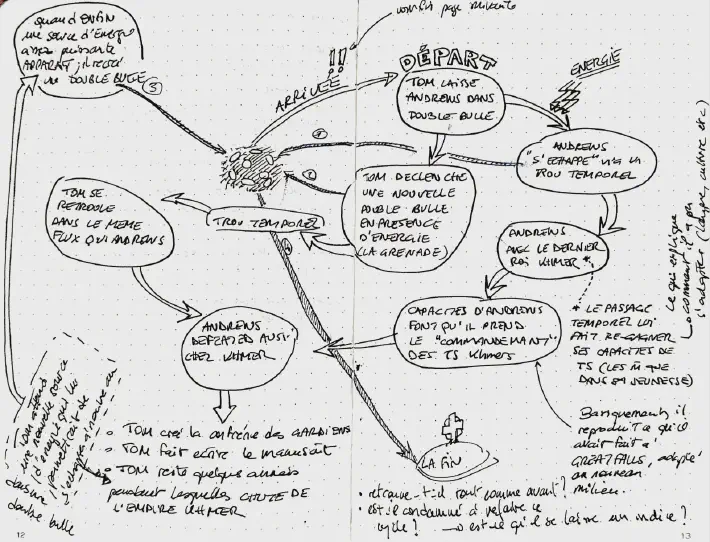 quand ENFIN
une source d'énergie
assez puissante
APPARAÎT, il recrée
une DOUBLE BULLE
3
page suivante
!!
ARRIVÉE
DÉPART
TOM LAISSE
ANDREWS DANS
DOUBLE BULLE.
ENERGIE
ANDREWS
"S'ECHAPPE" VIA LA
TROU TEMPOREL
TOM DECLENCHE
UNE NOUVELLE
DOUBLE BULLE
EN PRESENCE
D'ENERGIE
(LA GRENADE)
TROU TEMPOREL
TOM SE
RETROUVE
DANS LE MEME
FLUX QU'ANDREWS
ANDREWS
AVEC LE DERNIER
ROI KHMER *
Ce qui explique
comment il a pu
s'adapter (langue, culture etc)
* LE PASSAGE
TEMPOREL LUI
FAIT RE-GAGNER
SES CAPACITES DE
TS (LES M̂ QUE
DANS SA JEUNESSE)
CAPACITES D'ANDREWS
FONT QU'IL PREND
LE "COMMANDEMANT"
DES TS KHMERS
ANDREWS
DEFEATED AUSSI
CHEZ KHMER
Basiquement, il
reproduit ce qu'il
avait fait à
GREAT FALLS, adapté
au nouveau
milieu.
o TOM crée la confrérie des GARDIENS
o TOM fait écrire le manuscrit
o TOM reste quelques années
pendant lesquelles CHUTE DE
L'EMPIRE KHMER
Tom attend
une nouvelle source
d'énergie qui lui
permettrait de
dans une
double bulle
LA FIN
• retrouve-t-il tout comme avant?
• est-il condamné à refaire le
cycle? → est-ce qu'il se laisse un indice?
12
13